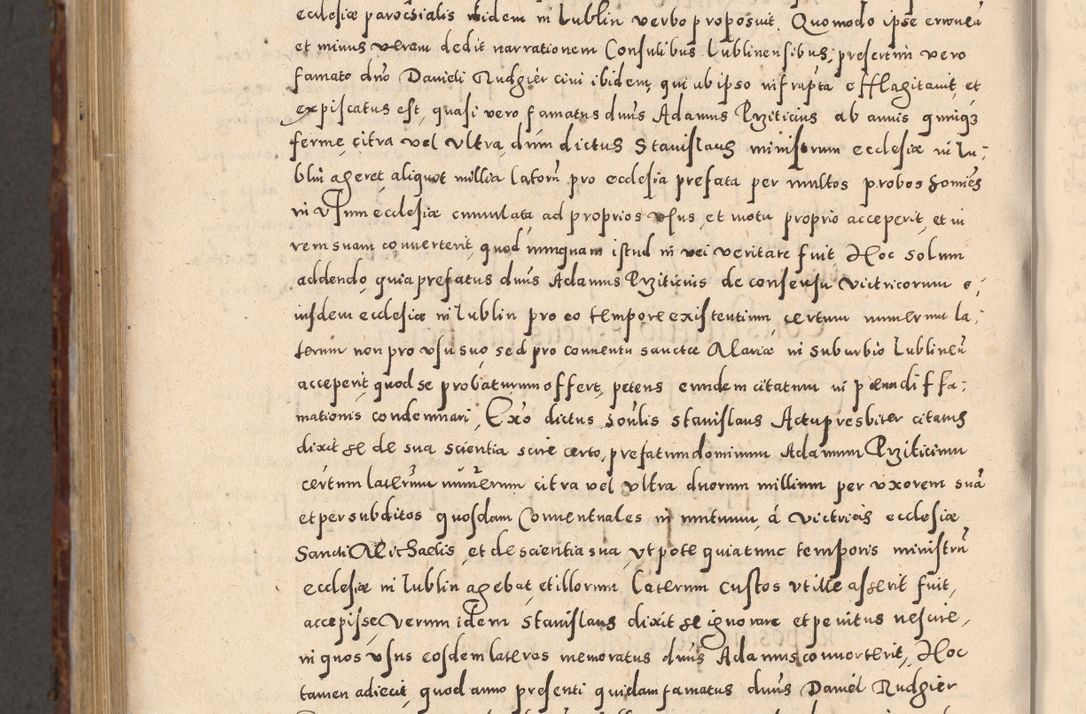 ecclesiæ parochialis ibidem in Lublin verbo proposuit. Quomodo ipse erroneā
et minus veram dedit narrationem Consulibus Lublinensibus, presertim vero
famato dno Danieli Rudgier civi ibidem, qui ab ipso infrapta efflagitavit, et
expiscatus est, quasi vero famatus dnus Adamus Prziticius ab annis quinqz
ferme, citra vel ultra, dum dictus Stanislaus ministrum ecclesiæ in Lu-
blin ageret, aliquot millia laterū pro ecclesia prefata per multos probos homines
in usum ecclesiæ cumulata, ad proprios usus, et motu proprio acceperit, et in
rem suam converterit, quod nunquam istud in rei veritate fuit, Hoc solum
addendo, quia prefatus dnus Adamus Prziticius de consensu victricorum e-
iusdem ecclesiæ in Lublin pro eo tempore existentium, certum numerum la-
terum non pro usu suo, sed pro conventu sanctæ Mariæ in suburbio Lublineñ
acceperit, quod se probaturum offert, petens eundem citatum in pœnam diffa-
mationis condemnari, Exo dictus honlis Stanislaus Actu presbiter citatus
dixit se de sua scientia scire certo, prefatum dominum Adamum Prziticium
certum laterum numerum citra vel ultra duorum millium per uxorem suā
et per subditos quosdam Conventuales in mutuum, á victricis ecclesiæ
Sancti Michaelis, et de scientia sua, utpote quia tunc temporis ministrū
ecclesiæ in Lublin agebat, et illorum laterum custos ut ille asserit fuit,
accepisse, Verum idem Stanislaus dixit se ignorare et penitus nescire,
in quos usus eosdem lateres memoratus dnus Adamus converterit, Hoc
tamen adiecit, quod anno presenti quidam famatus dnus Daniel Rudgier